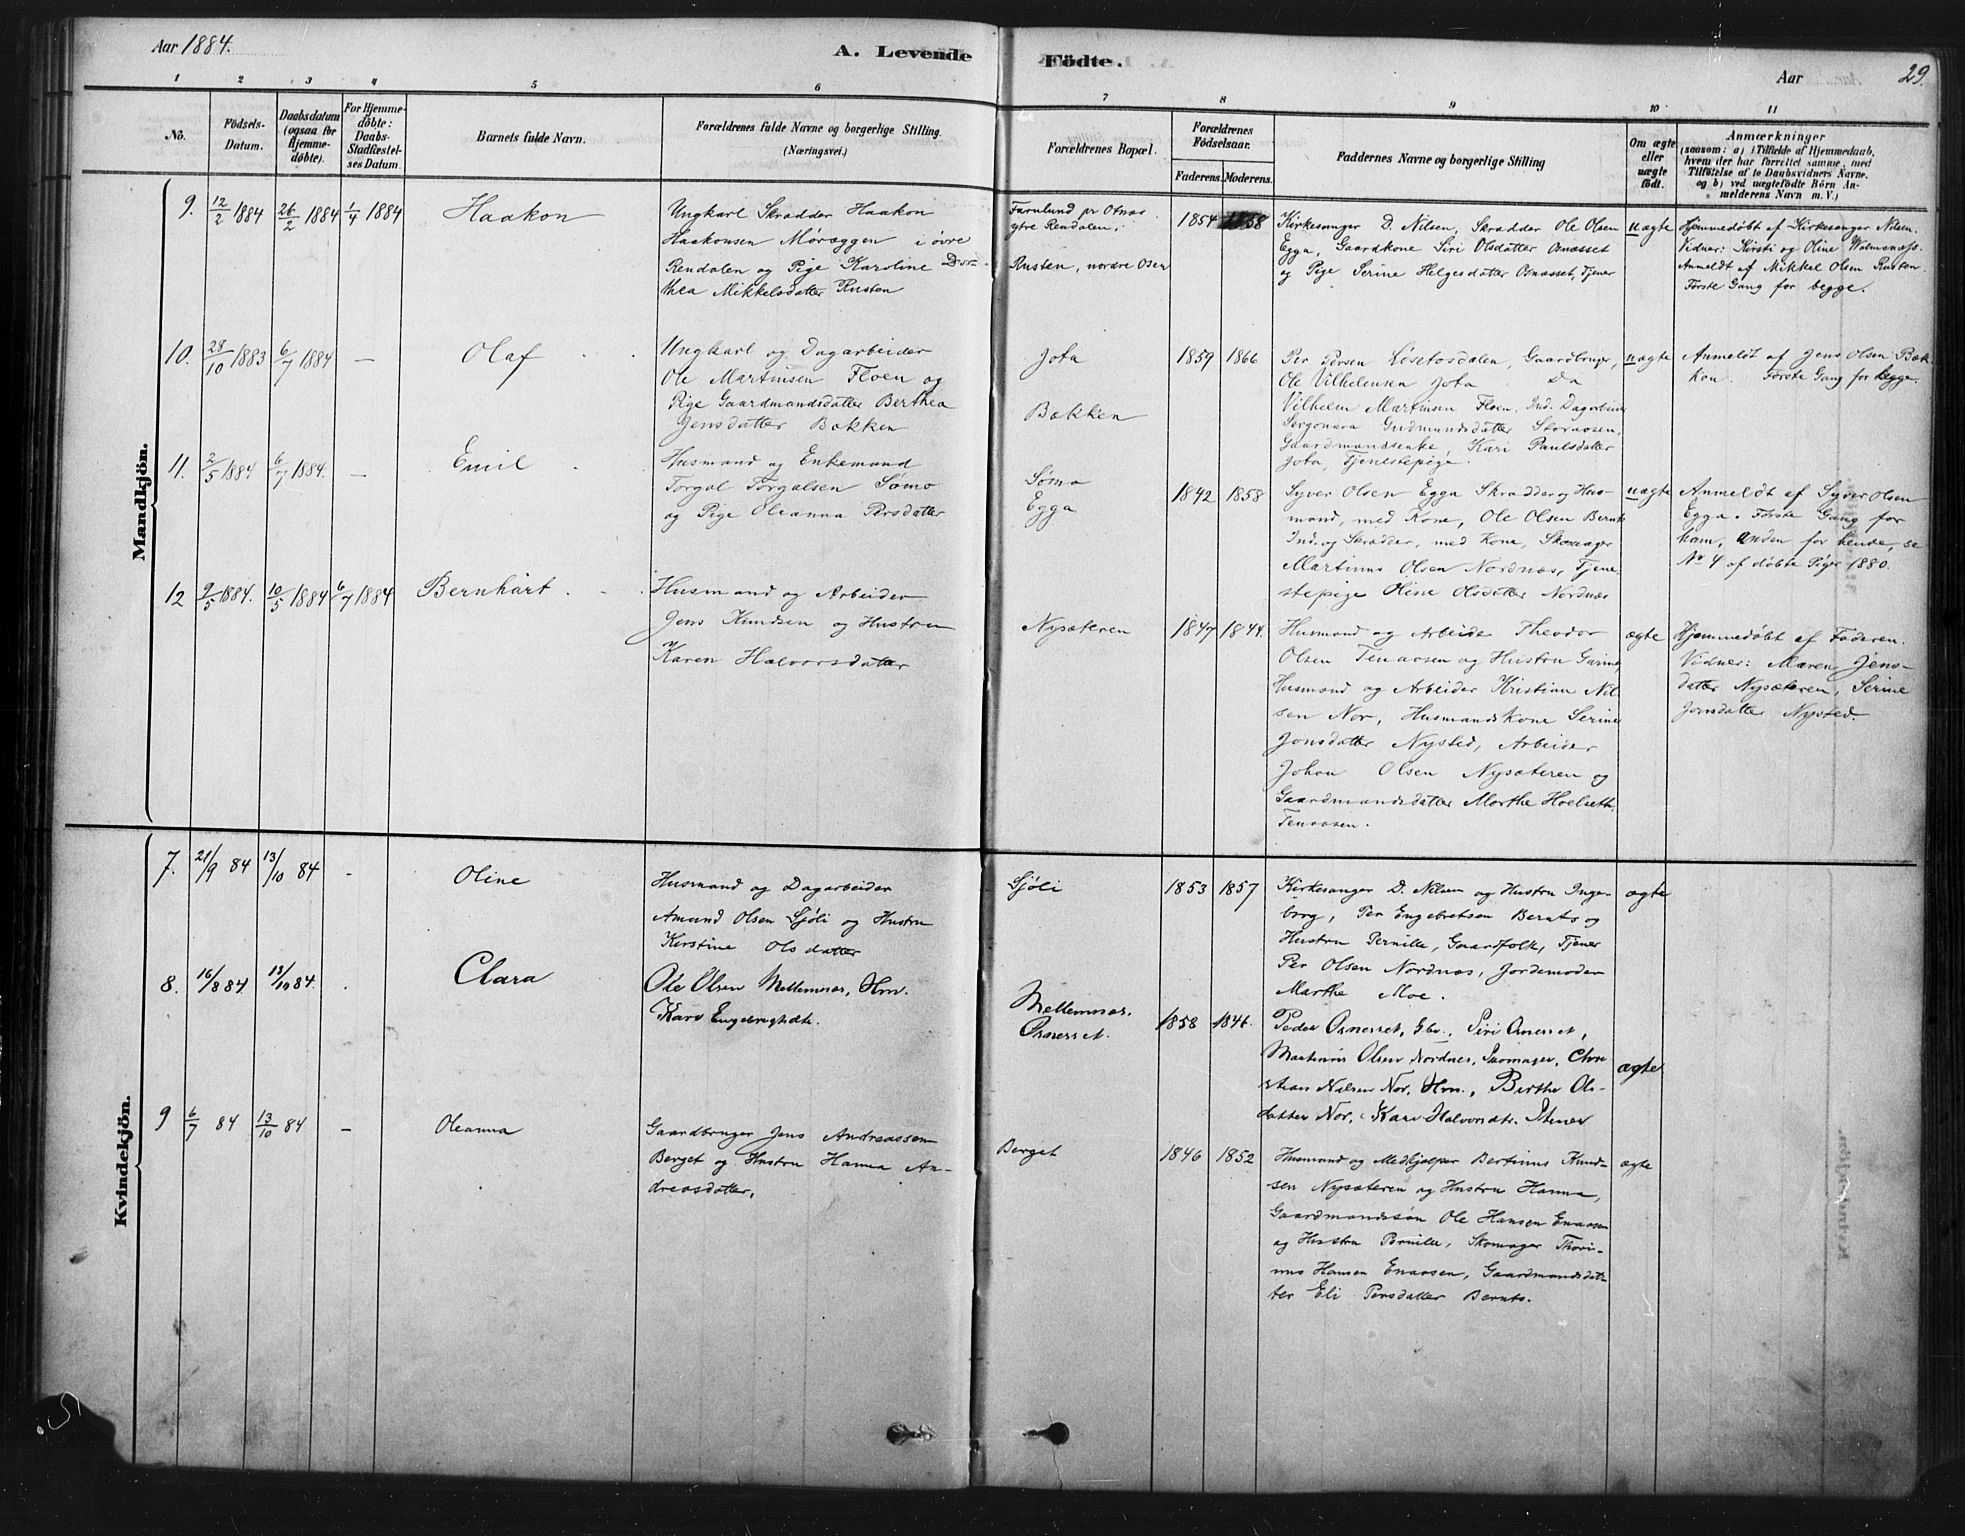 Aar 1884.
A. Levende
Födte.
Aar
29.
1
2
3
4
5
6
7
8
9
10
11
No.
Födsels-
Datum.
Daabsdatum
(ogsaa for
Hjemme-
døbte).
For Hjemme-
döbte:
Daabs-
Stadfæstel-
ses Datum.
Barnets fulde Navn.
Forældrenes fulde Navne og borgerlige Stilling.
(Næringsvei.)
Forældrenes Bopæl.
Forældrenes
Födselsaar.
Faderens.
Moderens.
Faddernes Navne og borgerlige Stilling
Om ægte
eller
uægte
födt.
Anmærkninger
(saasom: a) i Tilfælde af Hjemmedaab,
hvem der har forrettet samme, med
Tilföielse af to Daabsvidners Navne.
og b) ved uægtefödte Börn An-
melderens Navn m. V.)
Mandkjön.
9.
12/2 1884
26/2 1884
1/4 1884
Haakon
Ungkarl Skrædder Haakon
Haakonsen Møræggen i øvre
Rendalen og Pige Karoline Dor-
thea Mikkelsdatter Rusten
pr Otnæs
ytre Rendalen,
Rusten, nordre Osen
1854
1858
Kirkesanger D. Nilsen, Skrædder Ole Olsen
Egga, Gaardkone Siri Olsdatter Osnæsset
og Pige Serine Helgesdatter Osnæsset, Tjener
uægte
Hjemmedøbt af Kirkesanger Nilsen.
Vidner: Kirsti og Oline
Anmeldt af Mikkel Olsen Rusten
Første Gang for begge.
10.
28/10 1883
6/7 1884
—
Olaf
Ungkarl og Dagarbeider
Ole Martinsen Floen og
Pige Gaardmandsdatter Berthea
Jensdatter Bækken
Jota
Bækken
1859
1866
Per Persen Løsetosdalen, Gaardbruger,
Ole Vilhelmsen Jota Do
Vilhelm Martinsen Floen, Ind. Dagarbeider
Gudmundsdatter Storaasen,
Gaardmandsenke, Kari Paulsdatter
Jota, Tjenestepige.
uægte
Anmeldt af Jens Olsen Bæk-
ken. Første Gang for begge.
11.
2/5 1884
6/7 1884.
—
Emil
Husmand og Enkemand
Torgal Torgalsen Sømo
og Pige Oleanna Persdatter
Sømo
Egga
1842
1858
Syver Olsen Egga Skrædder og Hus-
mand, med Kone, Ole Olsen Bernts
Ind. og Skrædder, med Kone, Skomager
Martinus Olsen Nordnæs, Tjene-
stepige Oline Olsdatter Nordnæs
uægte
Anmeldt af Syver Olsen
Egga. Første Gang for
ham, anden for hende, se
No 4 af døbte Piger 1880.
12
9/5 1884.
10/5 1884
6/7 1884
Bernhart
Husmand og Arbeider
Jens Knudsen og Hustru
Karen Halvorsdatter
Nysæteren
1847
1844.
Husmand og Arbeider Theodor
Olsen Tenaasen og Hustru Gurine,
Husmand og Arbeider Kristian Nil-
sen Nor, Husmandskone Serine
Jonsdatter Nysted, Arbeider
Johan Olsen Nysæteren og
Gaardmandsdatter Marthe
Tenaasen.
ægte
Hjemmedøbt af Faderen.
Vidner: Maren Jens-
datter Nysæteren, Serine
Jonsdatter Nysted.
Kvindekjön.
7.
21/9 84
13/10 84
-
Oline
Husmand og Dagarbeider
Amund Olsen Sjöli og Hustru
Kirstine Olsdatter
Sjöli
1853
1857
Kirkesanger D. Nilsen og Hustru Inge-
borg, Per Engebretsen Bernts og
Hustru Pernille, Gaardfolk, Tjener
Per Olsen Nordnæs, Jordemoder
Marthe Moe.
ægte
8.
16/8 84
13/10 84.
Clara
Ole Olsen Mellemnæs, Hm.
Kari Engebrigtsdtr.
Mellemnæs,
Osnesset.
1858
1846.
Peder Osnesset, Gbr., Siri Osnesset,
Martinus Olsen Nordnes, Skomager, Chri-
stian Nilsen Nor, Hm., Birthe Ols-
datter Nor, Kari Halvorsdtr.
ægte
9
6/7 84
13/10 84
—
Oleanna
Gaardbruger Jens Andreassen
Berget og Hustru Hanna An-
dreasdatter.
Berget
1846
1852
Husmand og Medhjælper Bertinus Knud-
sen Nysæteren og Hustru Hanna,
Gaardmandssøn Ole Hansen Enaasen
og Hustru Pernille, Skomager Thori-
nus Hansen Enaasen, Gaardmandsdat-
ter Eli Persdatter Bernts.
ægte